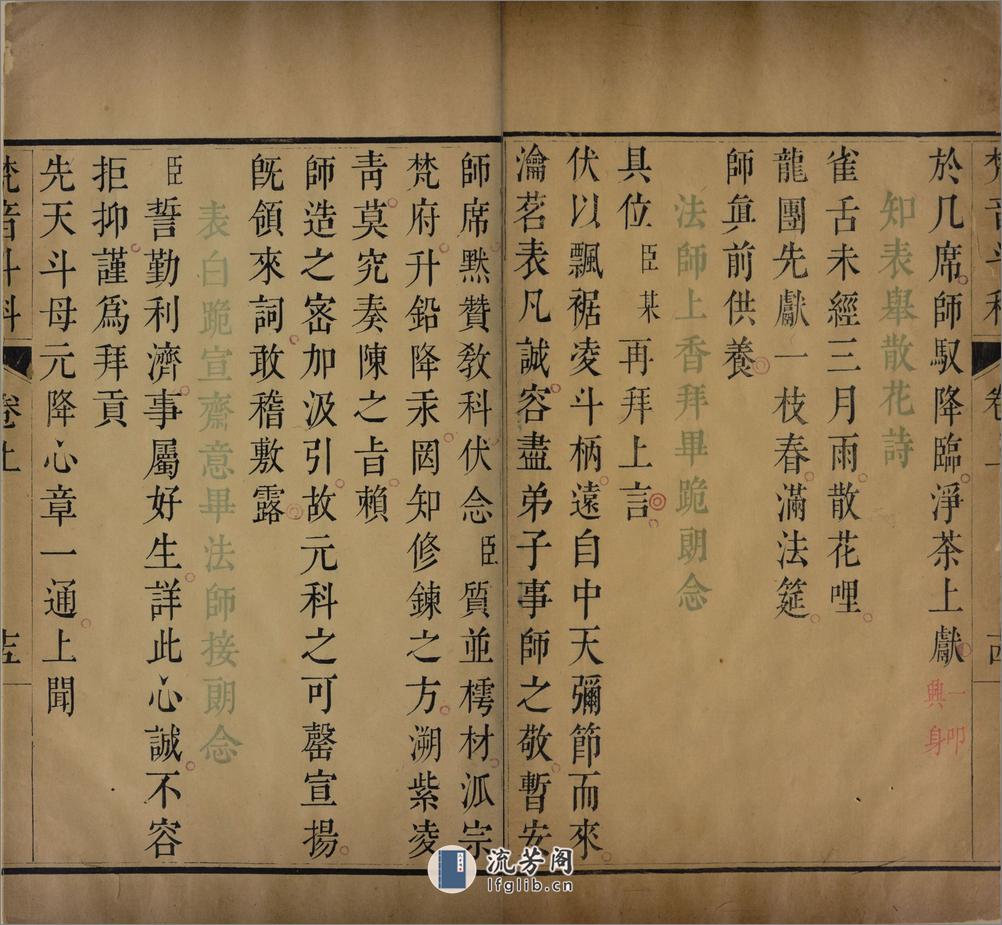 梵音斗科
卷上
十四
於几席師馭降臨淨茶上獻
一叩
興身
知表舉散花詩
雀舌未經三月雨散花哩
龍團先獻一枝春滿法筵
師眞前供養
法師上香拜畢跪朗念
具位臣某再拜上言
伏以飄裾凌斗柄遠自中天彌節而來
瀹茗表凡誠容盡弟子事師之敬暫安
師席黙贊敎科伏念臣質並樗材泒宗
梵府升鉛降汞罔知修鍊之方溯紫凌
靑莫究奏陳之旨賴
師造之密加汲引故元科之可罄宣揚
旣領來詞敢稽敷露
表白跪宣齋意畢法師接朗念
臣誓勤利濟事屬好生詳此心誠不容
拒抑謹爲拜貢
先天斗母元降心章一通上聞
梵音斗科
卷上
十五
流芳阁
lfglib.cn